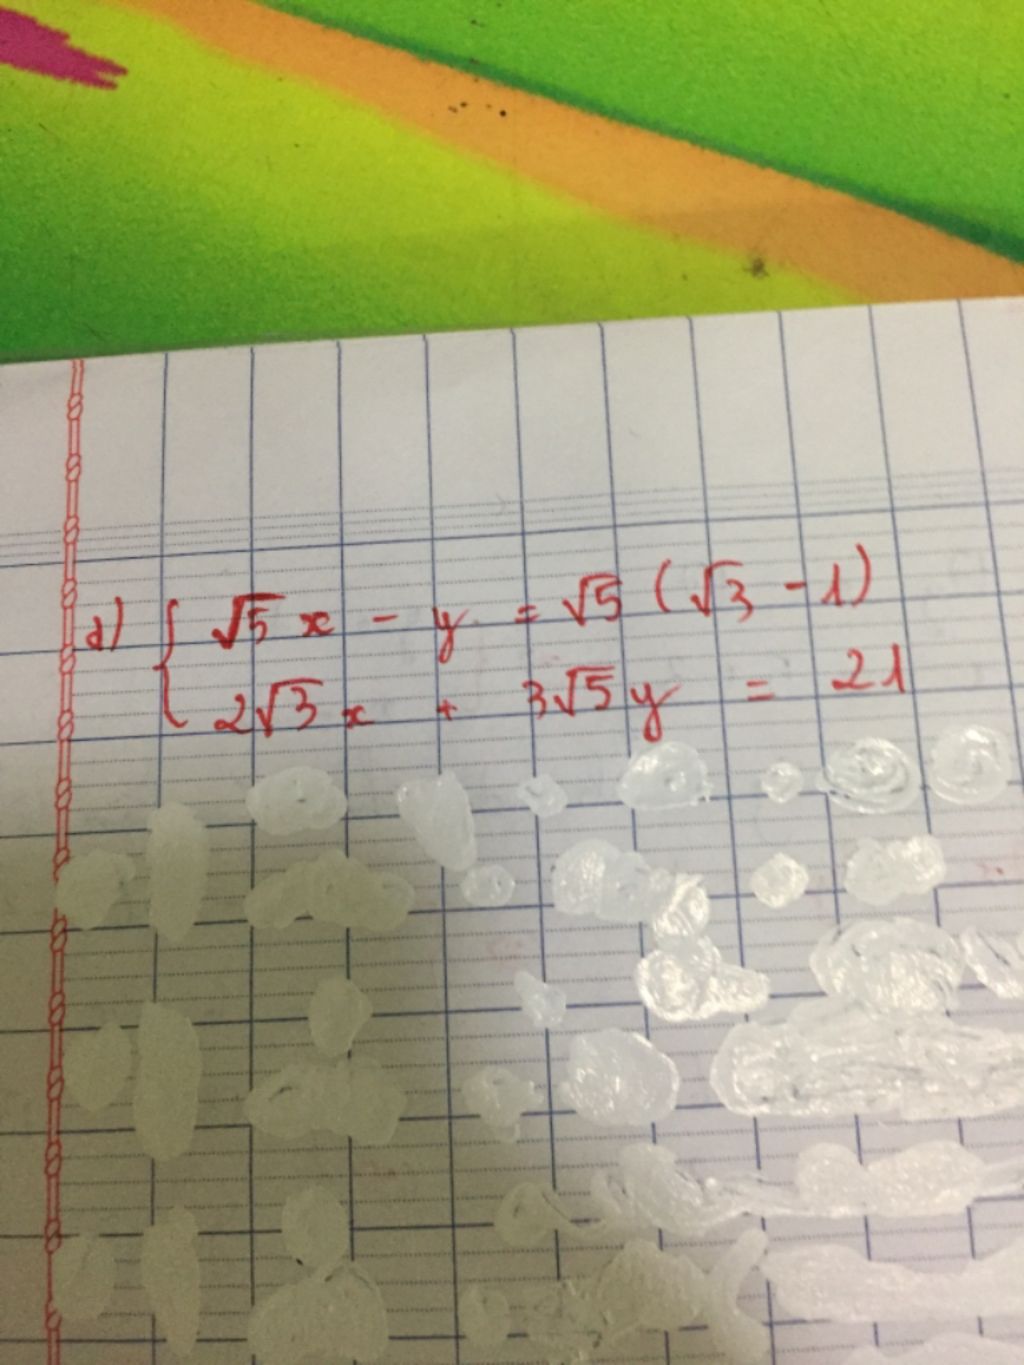 d) { √5 x - y = √5 (√3 - 1)
2√3 x + 3√5 y = 21